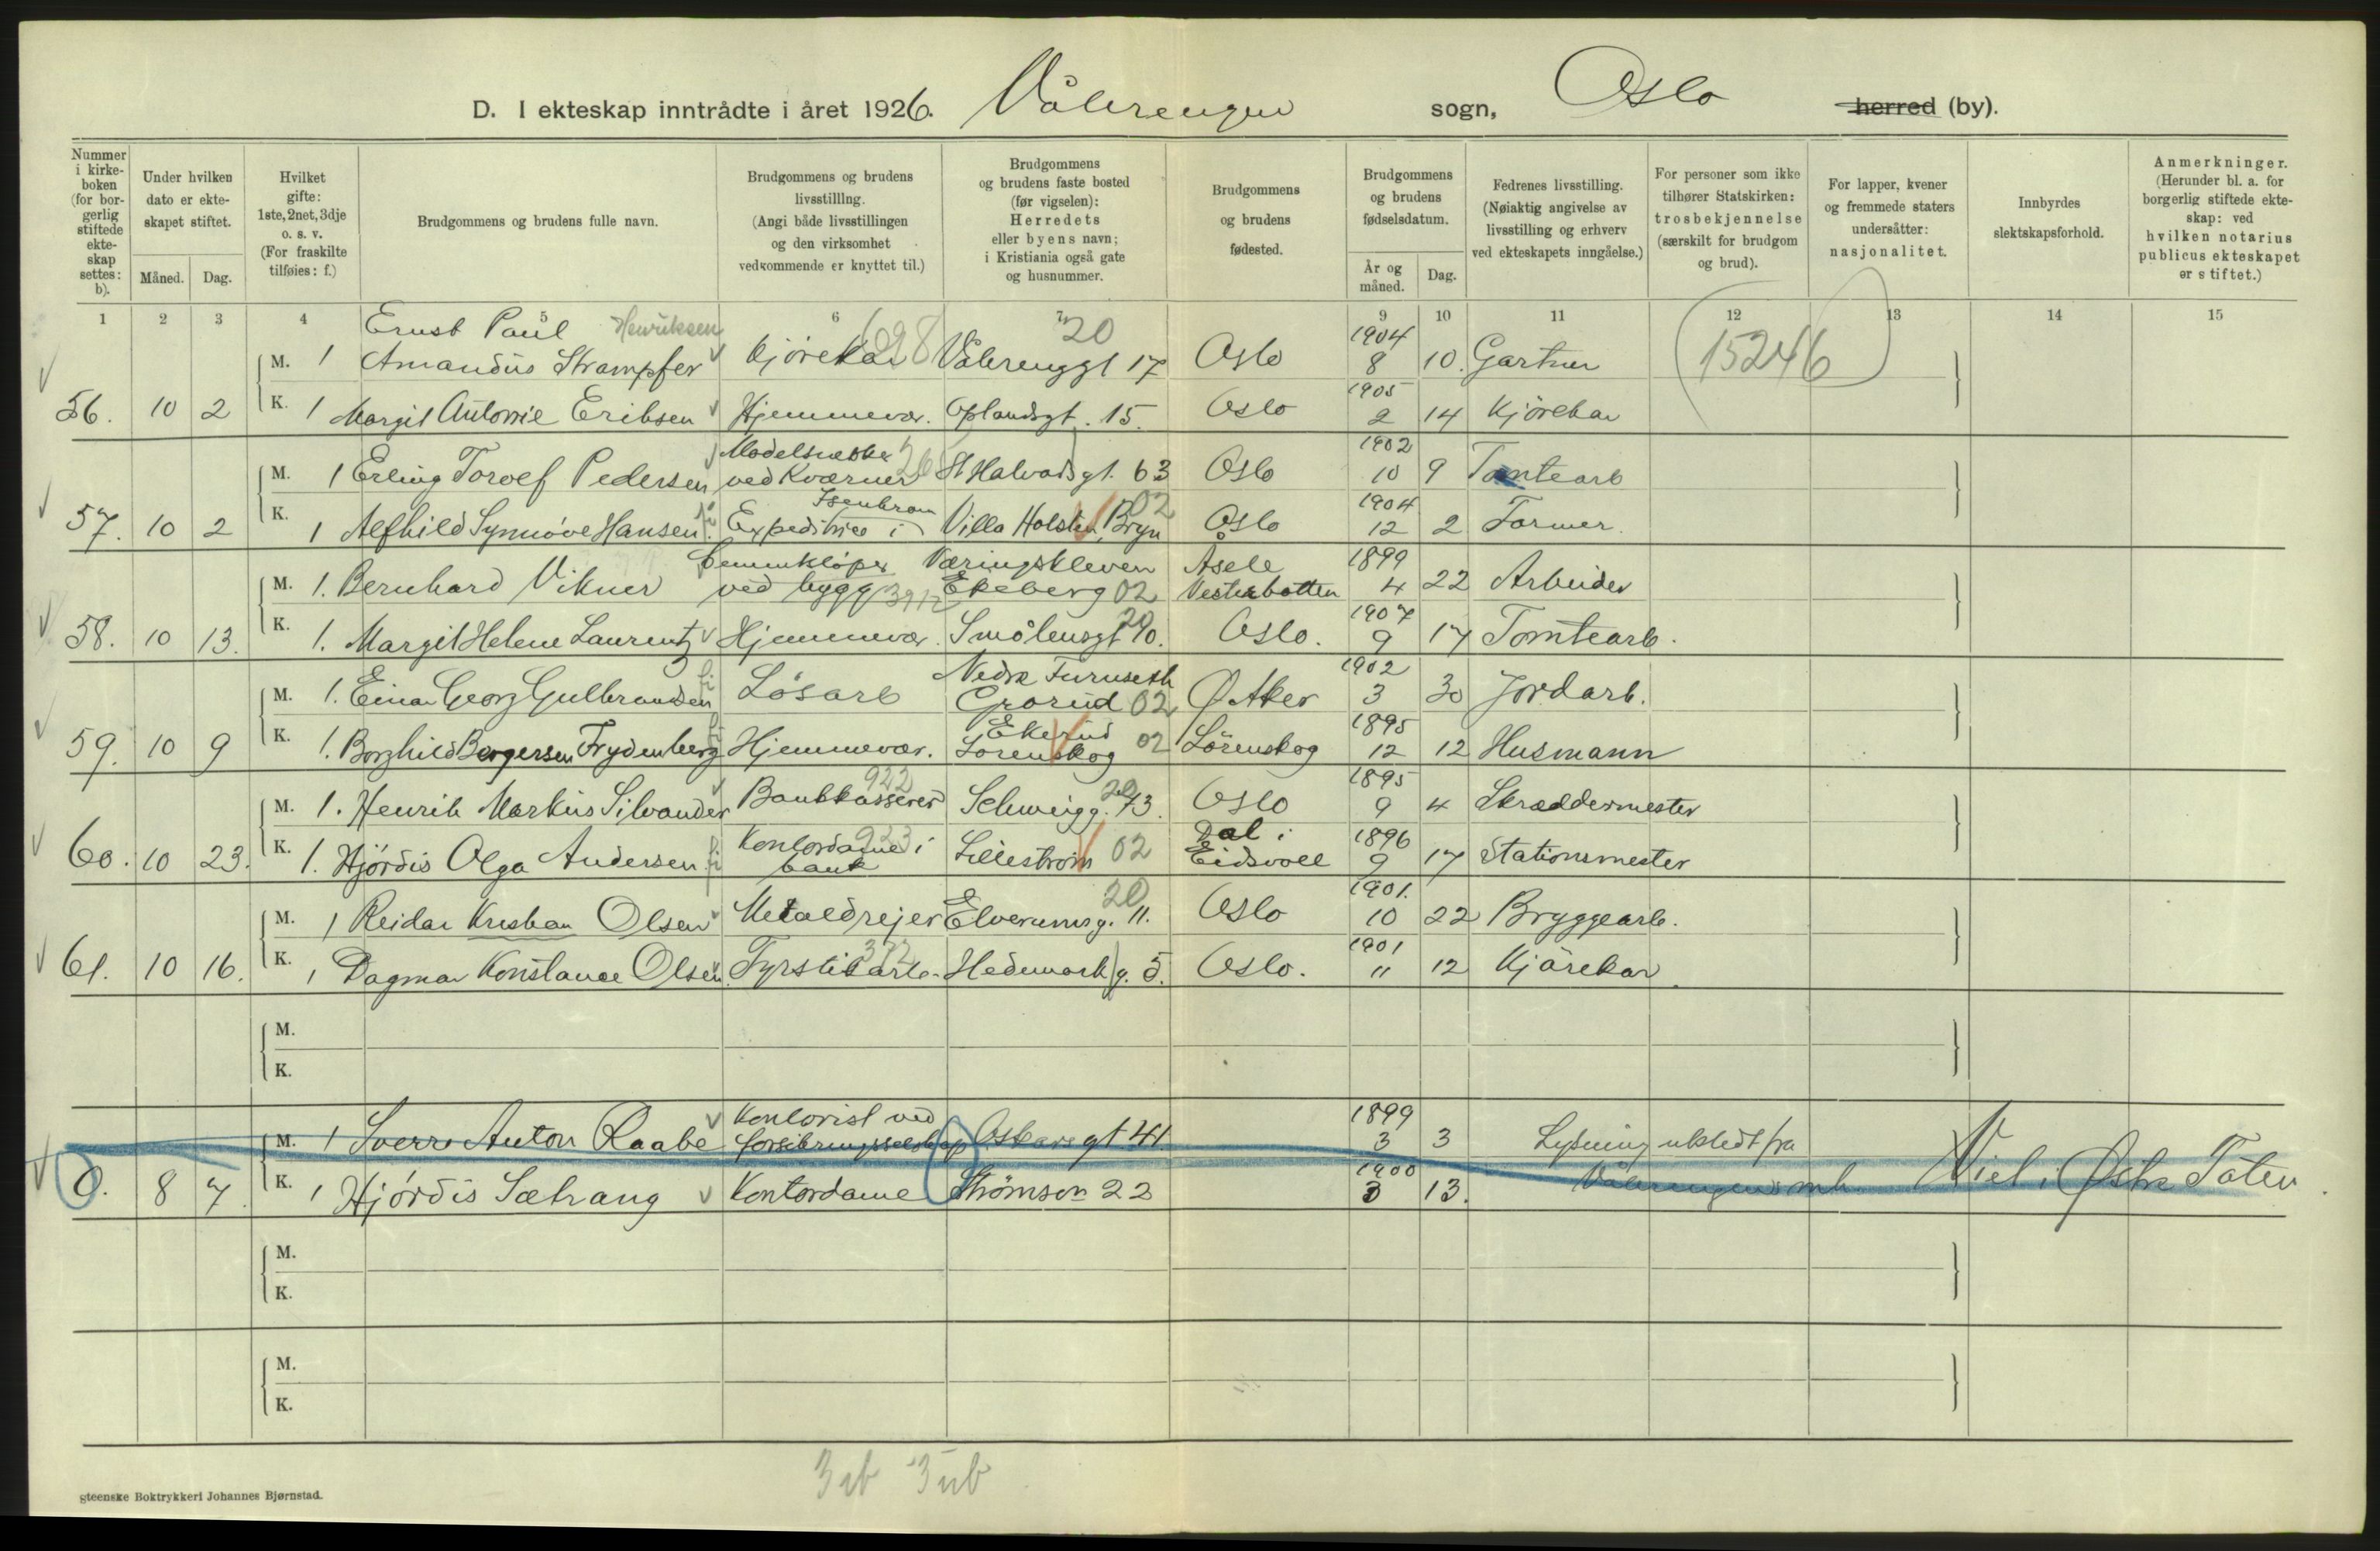 D. I ekteskap inntrådte i året 1926. Vålerengen sogn, Oslo herred (by).
Nummer i kirkeboken (for borgerlig stiftede ekteskap settes: b).
Under hvilken dato er ekteskapet stiftet.
Måned. Dag.
Hvilket gifte: 1ste, 2net, 3dje o. s. v. (For fraskilte tilføies: f.)
Brudgommens og brudens fulle navn.
Brudgommens og brudens livsstilllng. (Angi både livsstillingen og den virksomhet vedkommende er knyttet til.)
Brudgommens og brudens faste bosted (før vigselen): Herredets eller byens navn; i Kristiania også gate og husnummer.
Brudgommens og brudens fødested.
Brudgommens og brudens fødselsdatum.
År og måned. Dag.
Fedrenes livsstilling. (Nøiaktig angivelse av livsstilling og erhverv ved ekteskapets inngåelse.)
For personer som ikke tilhører Statskirken: trosbekjennelse (særskilt for brudgom og brud).
For lapper, kvener og fremmede staters undersåtter: nasjonalitet.
Innbyrdes slektskapsforhold.
Anmerkninger. (Herunder bl. a. for borgerlig stiftede ekteskap: ved hvilken notarius publicus ekteskapet er stiftet.)
1 2 3 4 5 6 7 9 10 11 12 13 14 15
Ernst Paul Henriksen 698 20 1904 15246
M. 1 Amandus Strampfer Kjörekar Vålerenggt 17 Oslo 8 10. Gartner
1905
56. 10 2 K. 1 Margit Antonie Eriksen Hjemmevær. Oplandsgt. 15. Oslo 2 14 Kjörekar
Modelsnekker 26 1902
M. 1 Erling Torolf Pedersen ved Kværner St Halvardsgt. 63 Oslo 10 9 Tomtearb
Isenkram 02 1904
57. 10 2 K. 1 Alfhild Synnöve Hansen Expeditrice i Villa Holsten, Bryn Oslo 12 2 Former.
Væringskleven Åsele 1899
M. 1. Bernhard Vikner ved bygg Ekeberg 02 Vesterbotten 4 22 Arbeider
20 1907
58. 10 13. K. 1. Margit Helene Laurentz Hjemmevær. Smålensgt 10. Oslo. 9 17 Tomtearb.
Nedre Furuseth 1902
M. 1. Einar Georg Gulbrandsen Lösarb Grorud 02 Ø Aker 3 30 Jordarb.
Ekerud 1895
59. 10 9 K. 1. Borghild Borgersen Frydenberg Hjemmevær. Lörenskog 02 Lörenskog 12 12 Husmann
922 20 1895
M. 1. Henrik Markus Silvander Bankkasserer Schweigg. 73. Oslo 9 4 Skræddermester
Kontordame i 923 Dal i 1896
60. 10 23. K. 1. Hjördis Olga Andersen bank Lilleström 02 Eidsvoll 9 17 Stationsmester
20 1901.
M. 1 Reidar Kristian Olsen Metaldrejer Elverumsg. 11. Oslo 10 22 Bryggearb.
372 1901
61. 10 16. K. 1 Dagmar Konstance Olsen Fyrstikarb. Hedemarkg. 5. Oslo. 11 12 Kjörekar
M.
K.
Kontorist ved 1899
M. 1 Sverre Anton Raabe forsikringsselskap Oskarsgt 41 3 3 Lysning utstedt fra
1900
0. 8 7. K. 1 Hjördis Sætrang Kontordame Strömsvn 22 3 13. Vålerengens mh. Viet i Østre Toten.
M.
K.
M.
K.
steenske Boktrykkeri Johannes Bjørnstad.